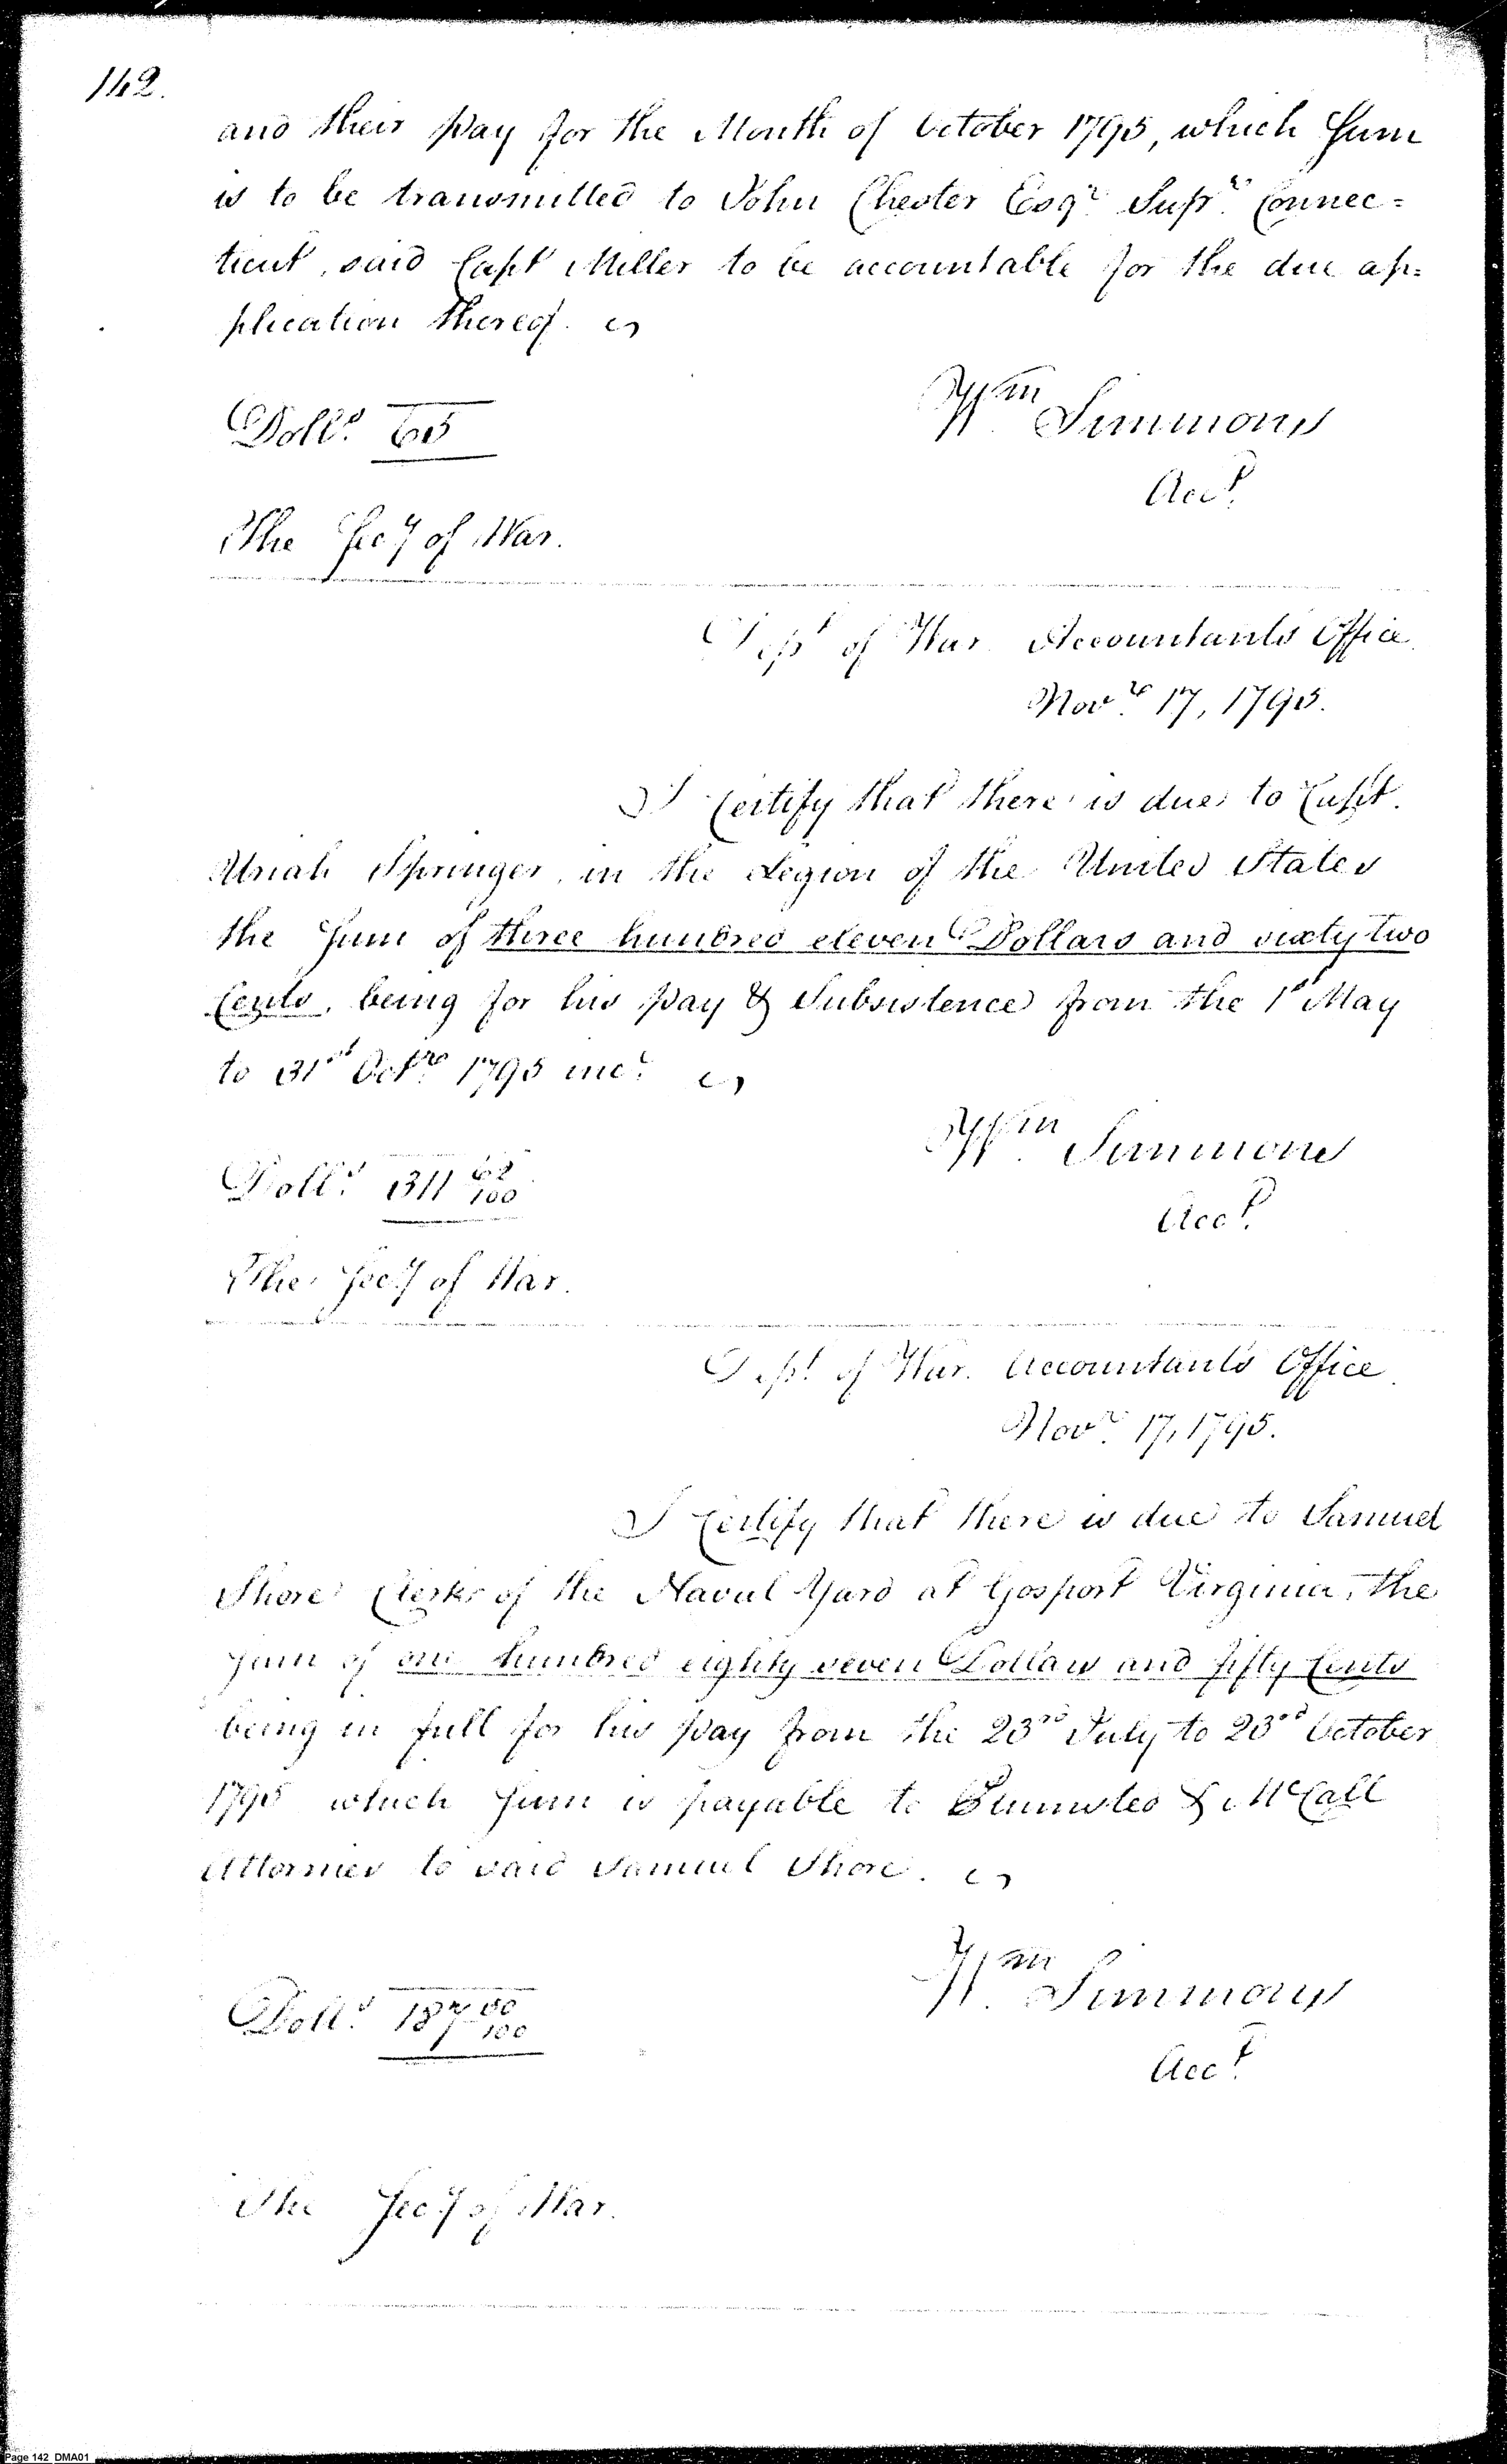 142.
and their pay for the Month of October 1795, which Sum
is to be transmitted to John Chester Esqr. Supr. Connec=
ticut, said Capt Miller to be accountable for the due ap=
plication thereof.
Wm Simmons
Dolls. 65
Acct.
The Secy of War.
Dept of War Accountants Office
Novr. 17, 1795.
I Certify that there is due to Capt.
Uriah Springer, in the Legion of the United States
the Sum of three hundred eleven Dollars and sixty two
Cents, being for his pay & Subsistence from the 1st May
to 31st Octr. 1795 incl.
Wm Simmons
Dolls. 311 62/100
Acct.
The Secy of War.
Dept. of War. Accountants Office
Novr. 17, 1795.
I Certify that there is due to Samuel
Shore Clerk of the Naval Yard at Gosport Virginia, the
Sum of one hundred eighty seven Dollars and fifty Cents
being in full for his pay from the 23rd July to 23rd October
1795 which Sum is payable to & McCall
Attornies to said Samuel Shore.
Wm Simmons
Dolls. 187 50/100
Acct.
The Secy of War.
Page 142 DMA01